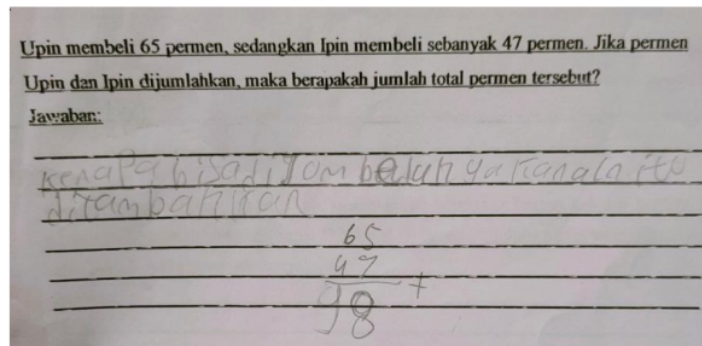 Upin membeli 65 permen, sedangkan Ipin membeli sebanyak 47 permen. Jika permen
Upin dan Ipin dijumlahkan, maka berapakah jumlah total permen tersebut?
Jawaban:
kenapa bisa di
ditambahkan
65
47
+
98